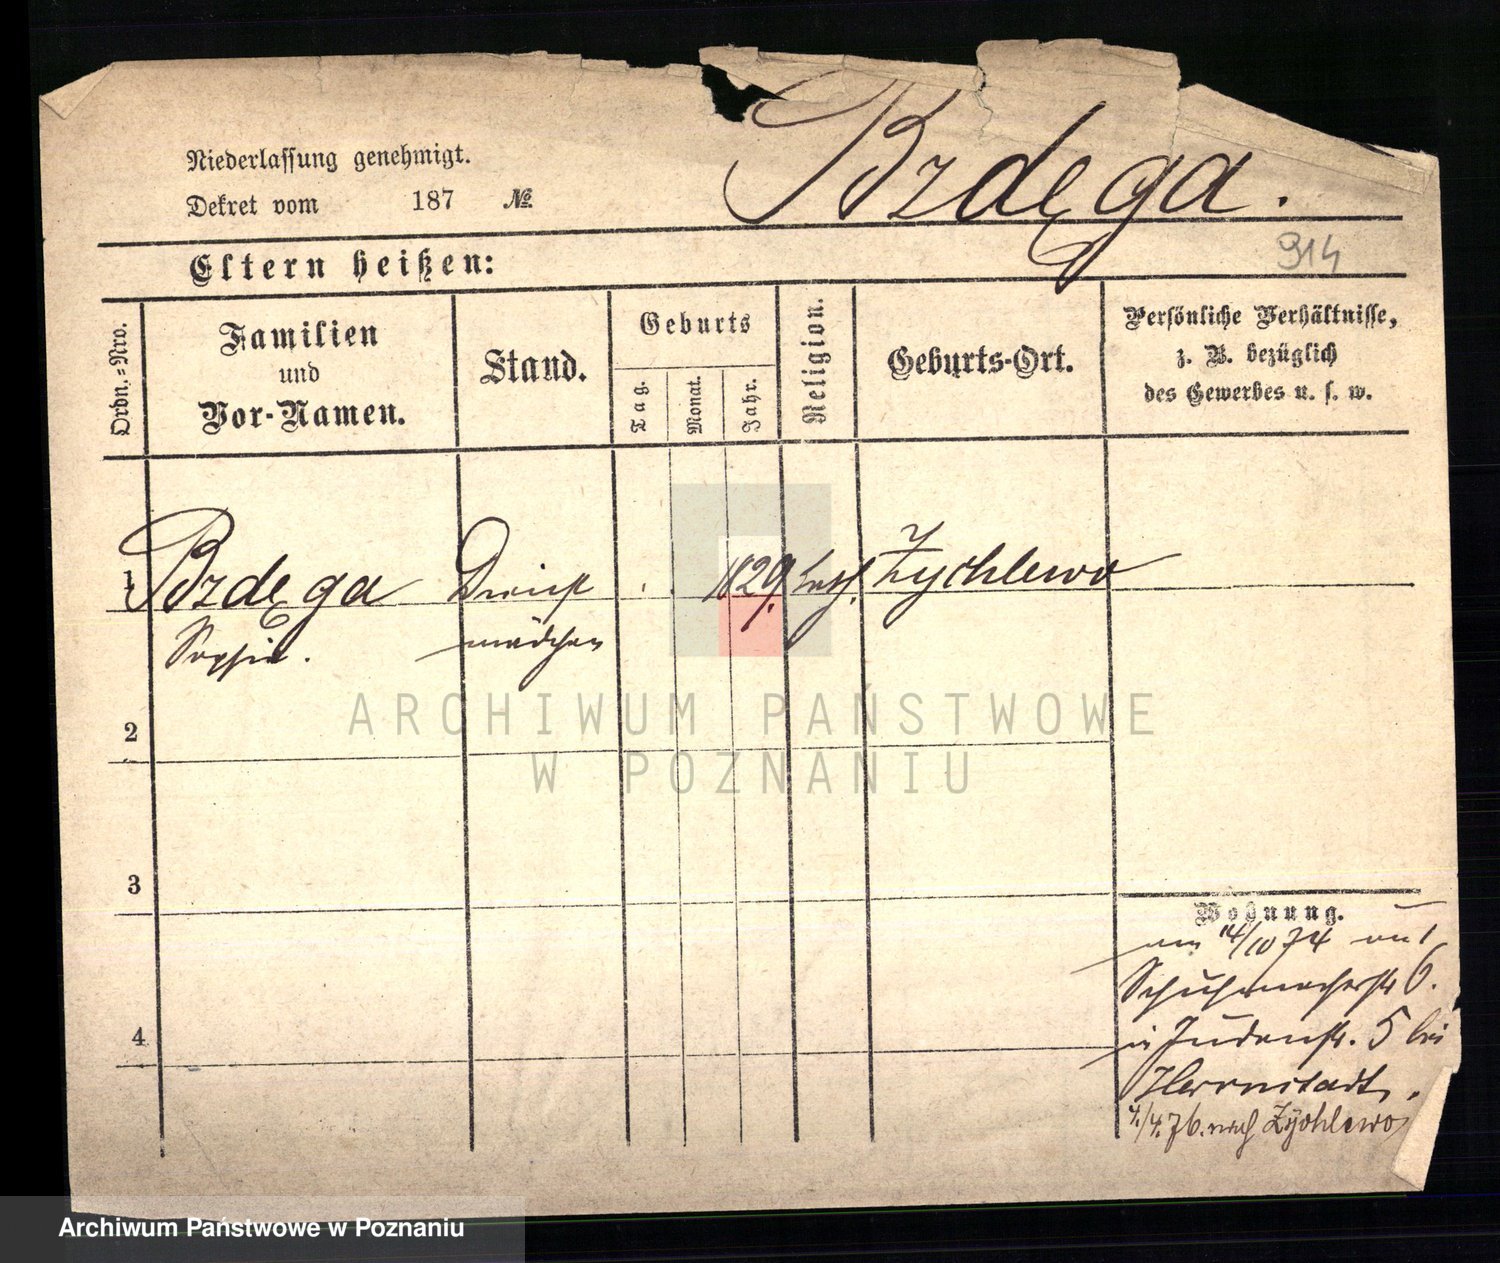 Niederlassung genehmigt.
Dekret vom 187 №
Brzdęga.
914
Eltern heißen:
Ordn.-Nro.
Familien
und
Vor-Namen.
Stand.
Geburts
Tag.
Monat.
Jahr.
Religion.
Geburts-Ort.
Persönliche Verhältnisse,
z. B. bezüglich
des Gewerbes u. s. w.
1 Bzdęga Dienst 1829. kath. Zychlewo
Sophie. mädchen
2
3
4
Wohnung.
14/10 74
Schuhmacherstr 6.
in Judenstr. 5 bei
Herrnstadt.
4./4. 76. nach Zychlewo
ARCHIWUM PAŃSTWOWE
W POZNANIU
Archiwum Państwowe w Poznaniu